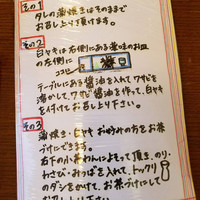 その1
タレの蒲焼きはそのままで
お召し上り頂けます。
その2
白ヤキは右側にある薬味のお皿
の左側に
ココ
テーブルにある醤油を入れてワサビを
溶かして、ワサビ醤油を作って、白ヤキ
を付けてお召し上り下さい。
その3
蒲焼き・白ヤキ お好みの方をお茶
づけにできます。
右下の小茶わんによそって頂き、のり・
わさび・おつばを入れて、トックリ
のダシをかけて、お茶づけにして
お召し上り下さい。